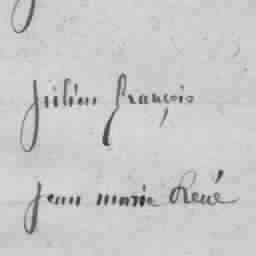 Julien françois
Jean marie René